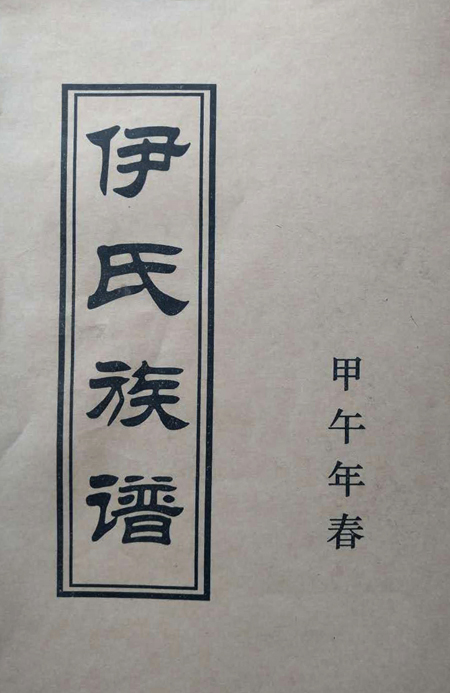 伊氏族谱
甲午年春